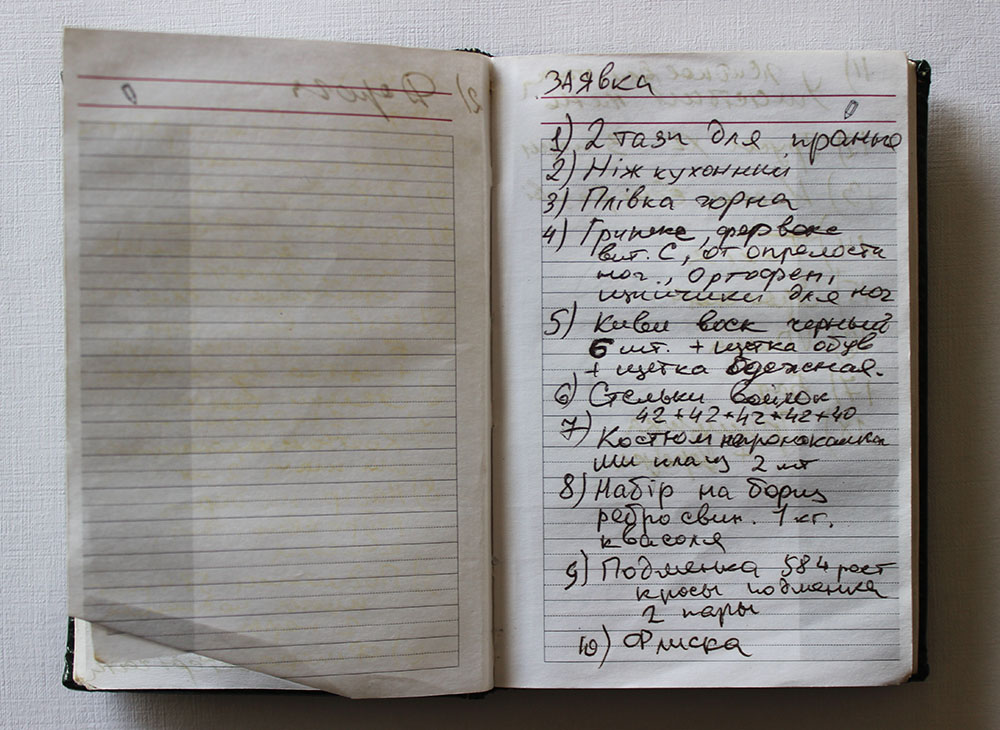 ЗАЯВКА
1) 2 тази для прання
2) Ніж кухонний
3) Плівка чорна
4) Грипекс, фервекс
вит. С, от опрелости
ног., Ортофен,
щипчики для ног
5) Киви воск черный
6 шт. + щетка обув
+ щетка одежная.
6) Стельки войлок
42+42+42+42+40
7) Костюм непромокашка
или плащ 2 шт
8) Набір на борщ
ребро свин. 1 кг.
квасоля
9) Подменка 58 4 рост
кросы подменка
2 пары
10) Флиска
2)